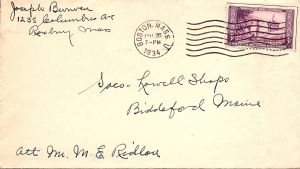 Joseph
1235 Columbus Av
Roxbury Mass
BOSTON, MASS.
7-PM
1934
Saco-Lowell Shops
Biddeford Maine
Att Mr. M. E. Redlon